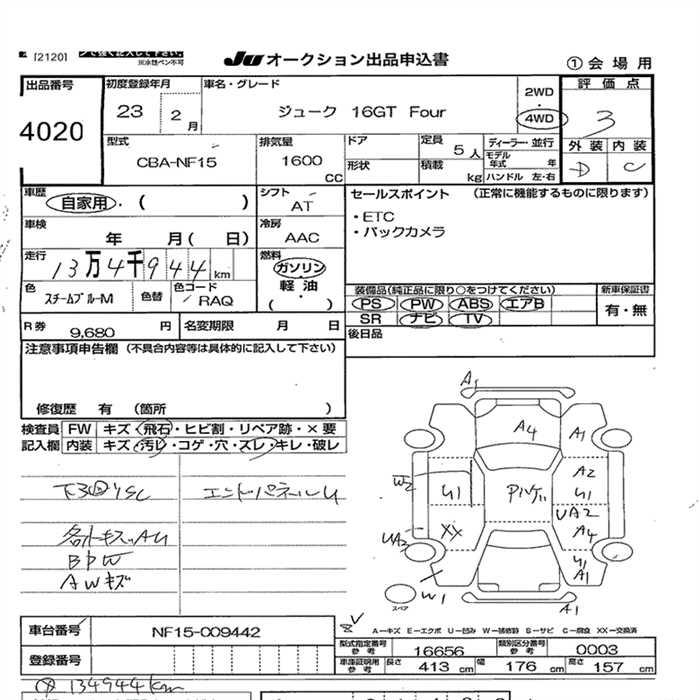 [2120]
で強く記入して下さい。
※水性ペン不可
JU オークション出品申込書
①会場用
出品番号
4020
初度登録年月
23 2月
車名・グレード
ジューク 16GT Four
2WD
・
4WD
評価点
3
外装 内装
D C
型式
CBA-NF15
排気量
1600 CC
ドア
形状
定員 5人
積載 kg
ディーラー・並行
モデル年式 年
ハンドル 左・右
車歴
自家用・( )
シフト
AT
セールスポイント (正常に機能するものに限ります)
・ETC
・バックカメラ
車検
年 月( 日)
冷房
AAC
走行
13万4千944km
燃料
ガソリン
軽油
( )
色
スチームブルーM
色替
色コード
RAQ
装備品(純正品に限り○をつけてください)
PS PW ABS エアB
SR ナビ TV
新車保証書
有・無
R券 9,680円
名変期限 月 日
後日品
注意事項申告欄 (不具合内容等は具体的に記入して下さい)
修復歴 有 (箇所 )
検査員記入欄
FW キズ・飛石・ヒビ割・リペア跡・×要
内装 キズ・汚レ・コゲ・穴・ズレ・キレ・破レ
エンドパネルU
BPW
AWキズ
A1
A4
A1
A2
W2
U1
U1
UA2
A4
XX
UA2
U1
A1
W1
A1
スペア
A-キズ E-エクボ U-凹み W-補修跡 S-サビ C-腐食 XX-交換済
車台番号 NF15-009442
登録番号
型式指定番号参考 16656
類別区分番号参考 0003
車庫証明用参考 長さ 413cm 幅 176cm 高さ 157cm
134944km